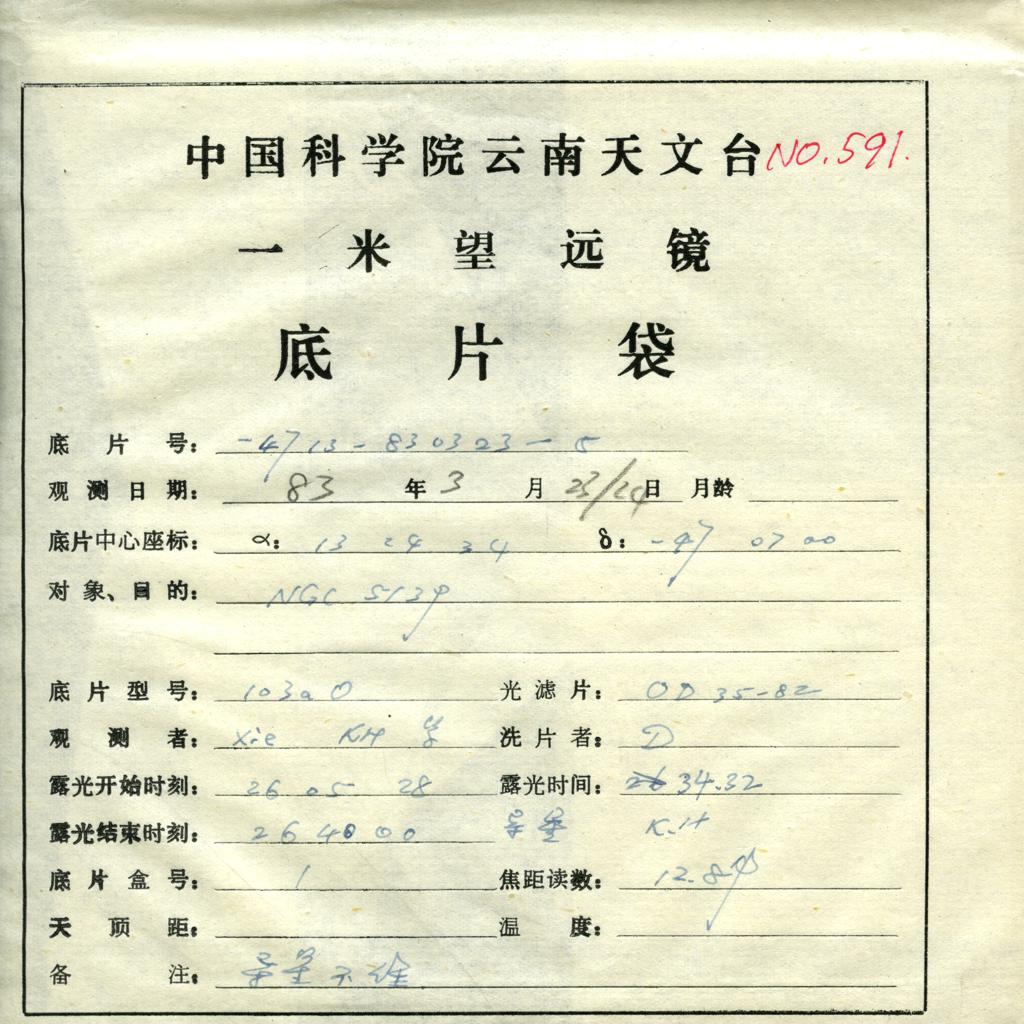 中国科学院云南天文台 NO.591.
一米望远镜
底片袋
底片号: -4713-830323-5
观测日期: 83年3月23/24日 月龄
底片中心座标: α: 13 24 34 δ: -47 07 00
对象、目的: NGC 5139
底片型号: 103aO 光滤片:
观测者: Xie KH 洗片者: D
露光开始时刻: 26 05 28 露光时间: 34.32
露光结束时刻: 26 40 00 导星 K.H
底片盒号: 1 焦距读数: 12.89
天顶距: 温度:
备注: 导星不佳